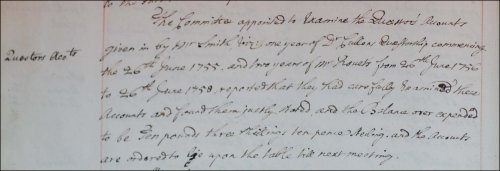 The Committee appointed to Examine the Questors Accounts
Questors Accots
given in by Mr Smith, viz: one year of Dr Questorship commencing
the 26th June 1755. and two year of Mr from 26th June 1756
to 26th June 1758, reported that they had carefully Examined these
Accounts and found them justly stated, and the Balance over expended
to be Ten pounds three shillings ten pence Sterling, and the Accounts
are ordered to lye upon the table till next meeting.